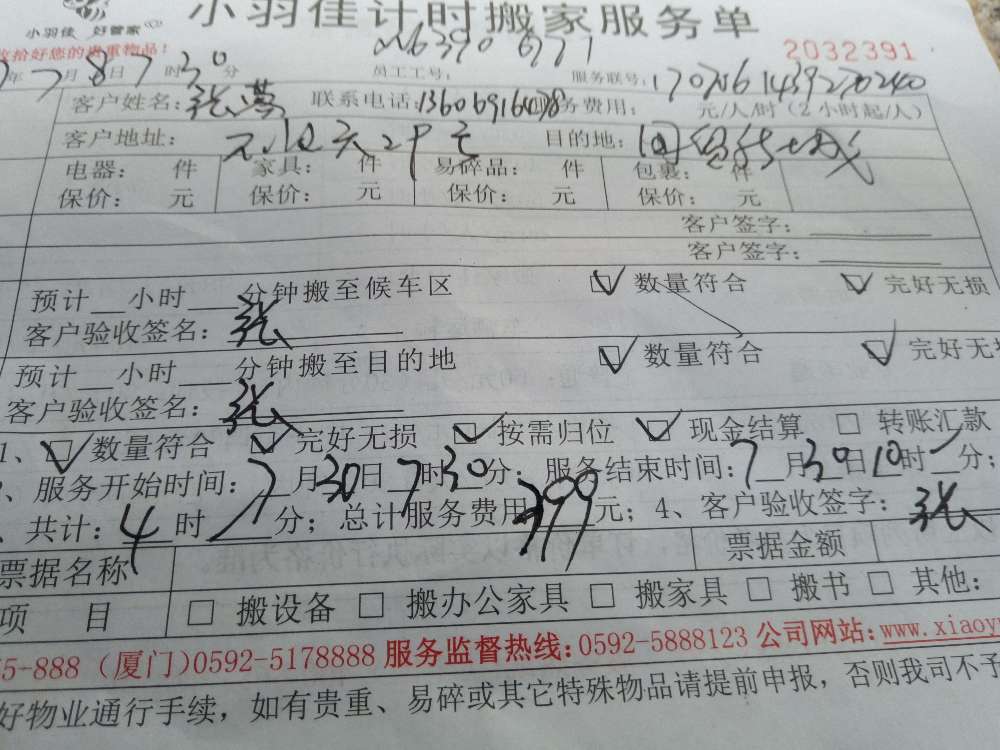 小羽佳计时搬家服务单
小羽佳 好管家
收拾好您的贵重物品！ 2032391
年7月8日7时30分 员工工号： 服务联号：
客户姓名： 联系电话： 务费用： 元/人/时（2小时起/人）
客户地址： 目的地：
电器： 件 家具： 件 易碎品： 件 包裹： 件
保价： 元 保价： 元 保价： 元 保价： 元
客户签字：
客户签字：
预计__小时____分钟搬至候车区 数量符合 完好无损
客户验收签名：张
预计__小时____分钟搬至目的地 数量符合 完好无
客户验收签名：张
1、数量符合 完好无损 按需归位 现金结算 转账汇款
、服务开始时间：7月30日7时30分；服务结束时间：7月30日10时一分；
、共计：4时 分；总计服务费用399元；4、客户验收签字：张
票据名称 票据金额
项目 □搬设备 □搬办公家具 □搬家具 □搬书 □其他：
5-888（厦门）0592-5178888 服务监督热线：0592-5888123 公司网站：www.xiaoy
好物业通行手续，如有贵重、易碎或其它特殊物品请提前申报，否则我司不予